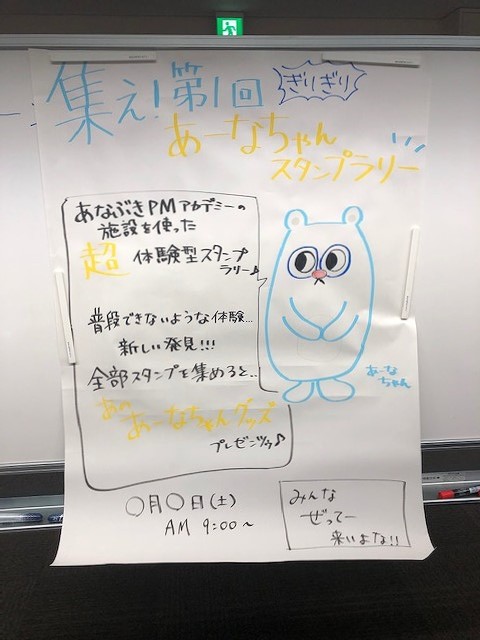 集え!第1回
ぎりぎり
あーなちゃん
スタンプラリー
あなぶきPMアカデミーの
施設を使った
超 体験型スタンプ
ラリー♪
普段できないような体験…
新しい発見!!!
全部スタンプを集めると…
あの
あーなちゃんグッズ
プレゼンツゥ♪
あーな
ちゃん
〇月〇日(土)
AM 9:00~
みんな
ぜってー
来いよな!!